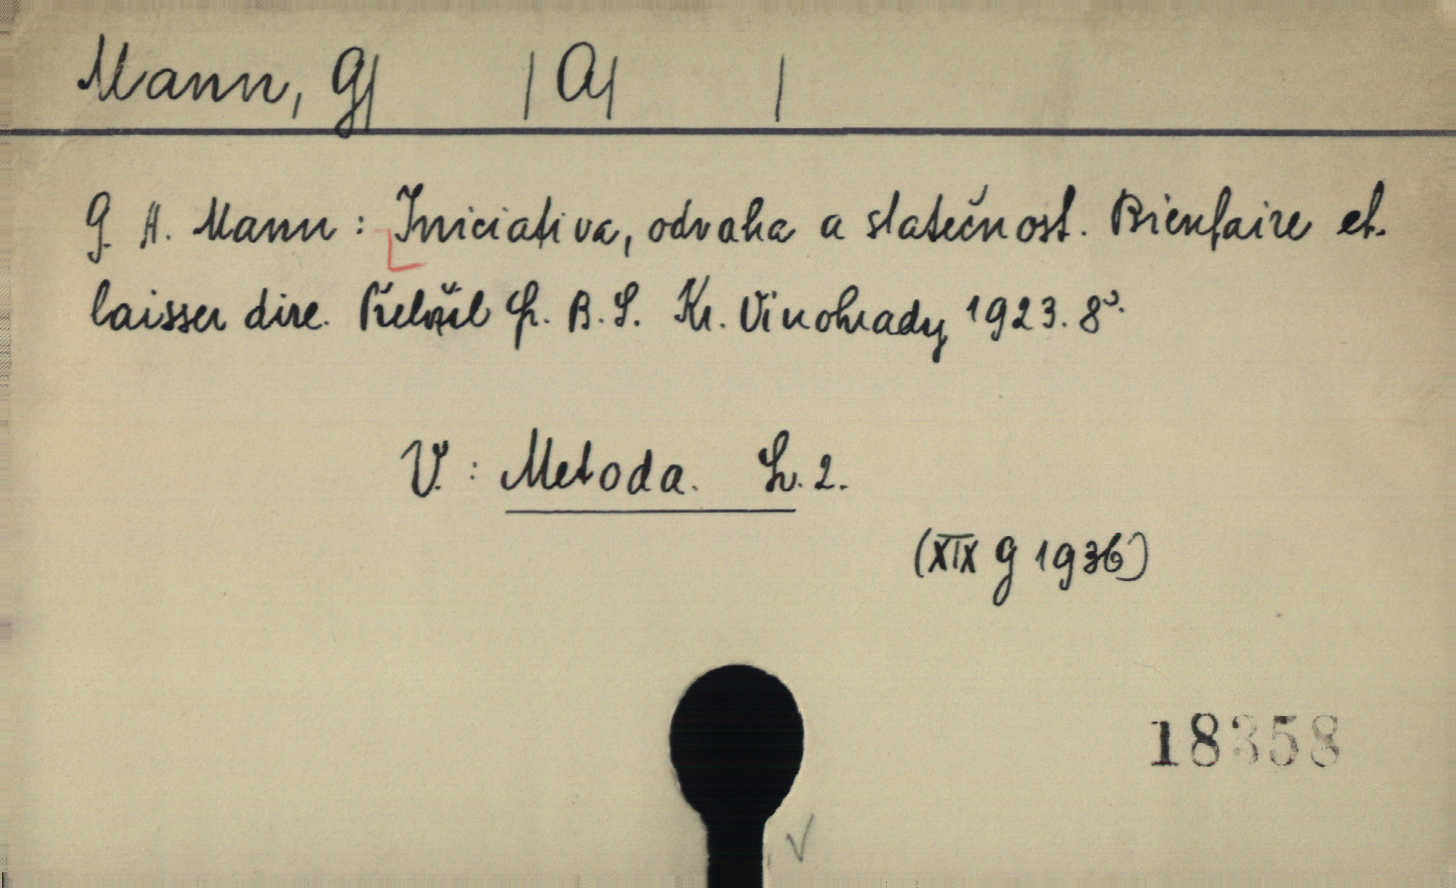 Mann, G| | A| |
G. A. Mann: Iniciativa, odvaha a statečnost. Bienfaire et.
laisser dire. Přeložil Fr. B. S. Kr. Vinohrady 1923. 8°.
V.: Metoda. Sv. 2.
(XIX g 1936)
18358